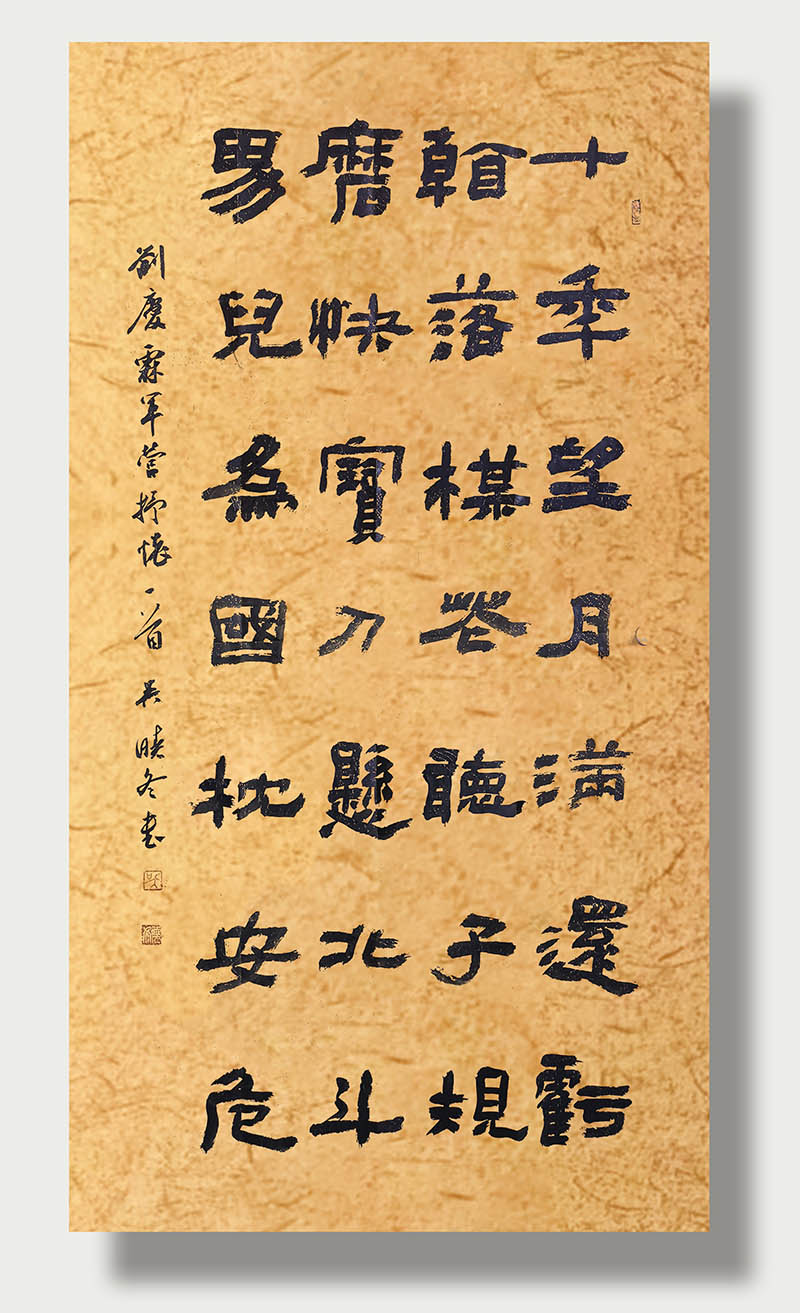 十年望月滿還虧
看落楳花聽子規
磨快寶刀懸北斗
男兒為國枕安危
劉慶霖軍營抒懷一首 吳曉冬書